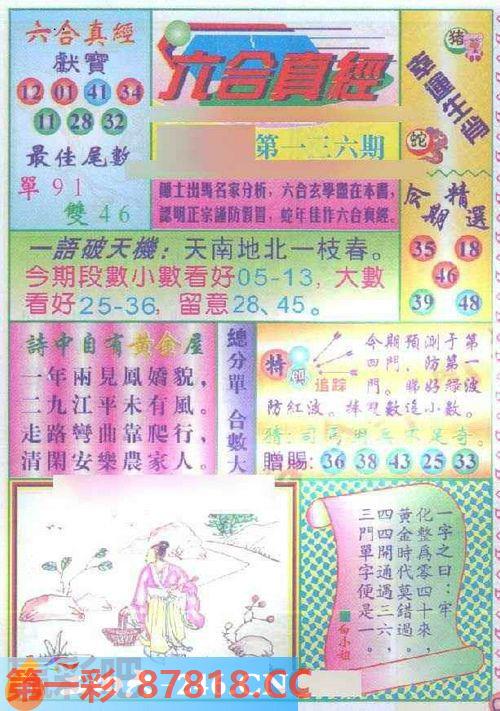 六合真經
獻寶
12 01 41 34
11 28 32
最佳尾數
單 91
雙 46
六合真經
第一三六期
師士出馬名家分析，六合玄學盡在本書，
認明正宗謹防假冒，蛇年佳作六合真經。
豬
蛇
今期精選
35 18
46
39 48
一語破天機：天南地北一枝春。
今期段數小數看好05-13，大數
看好25-36，留意28、45。
詩中自有黃金屋
一年兩見鳳嬌貌，
二九江平未有風。
走路彎曲靠爬行，
清閑安樂農家人。
總分單 合數大
特
追踪
今期預測子第
四門，防第一
門。睇好綠波
防紅波。捧雙數追小數。
猜：司馬用兵不足奇。
贈賜：36 38 43 25 33
一字之曰：牢
化整為零四十來，
黃金時代莫錯過，
四四開通遇三六，
三門單字便是一。
白小姐
第一彩 87818.CC